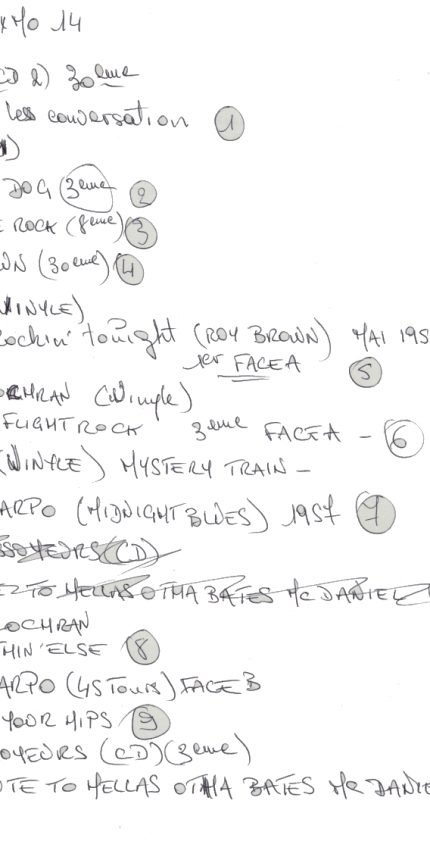 XMO 14
CD 2) 30eme
less conversation 1
DOG (3eme) 2
E ROCK (8eme) 3
WN (30eme) 4
VINYLE)
ockin' tonight (ROY BROWN) MAI 195
1er FACE A
5
OCHRAN (Vinyle)
FLIGHT ROCK 3eme FACE A - 6
(VINYLE) MYSTERY TRAIN -
ARPO (MIDNIGHT BLUES) 1957 7
SSOYEURS (CD)
TO HELLAS OTHA BATES MC DANIEL
COCHRAN
THIN' ELSE 8
ARPO (45 Tours) FACE B
YOOR HIPS 9
OYEURS (CD) (3eme)
OTE TO HELLAS OTHA BATES Mc DANIE